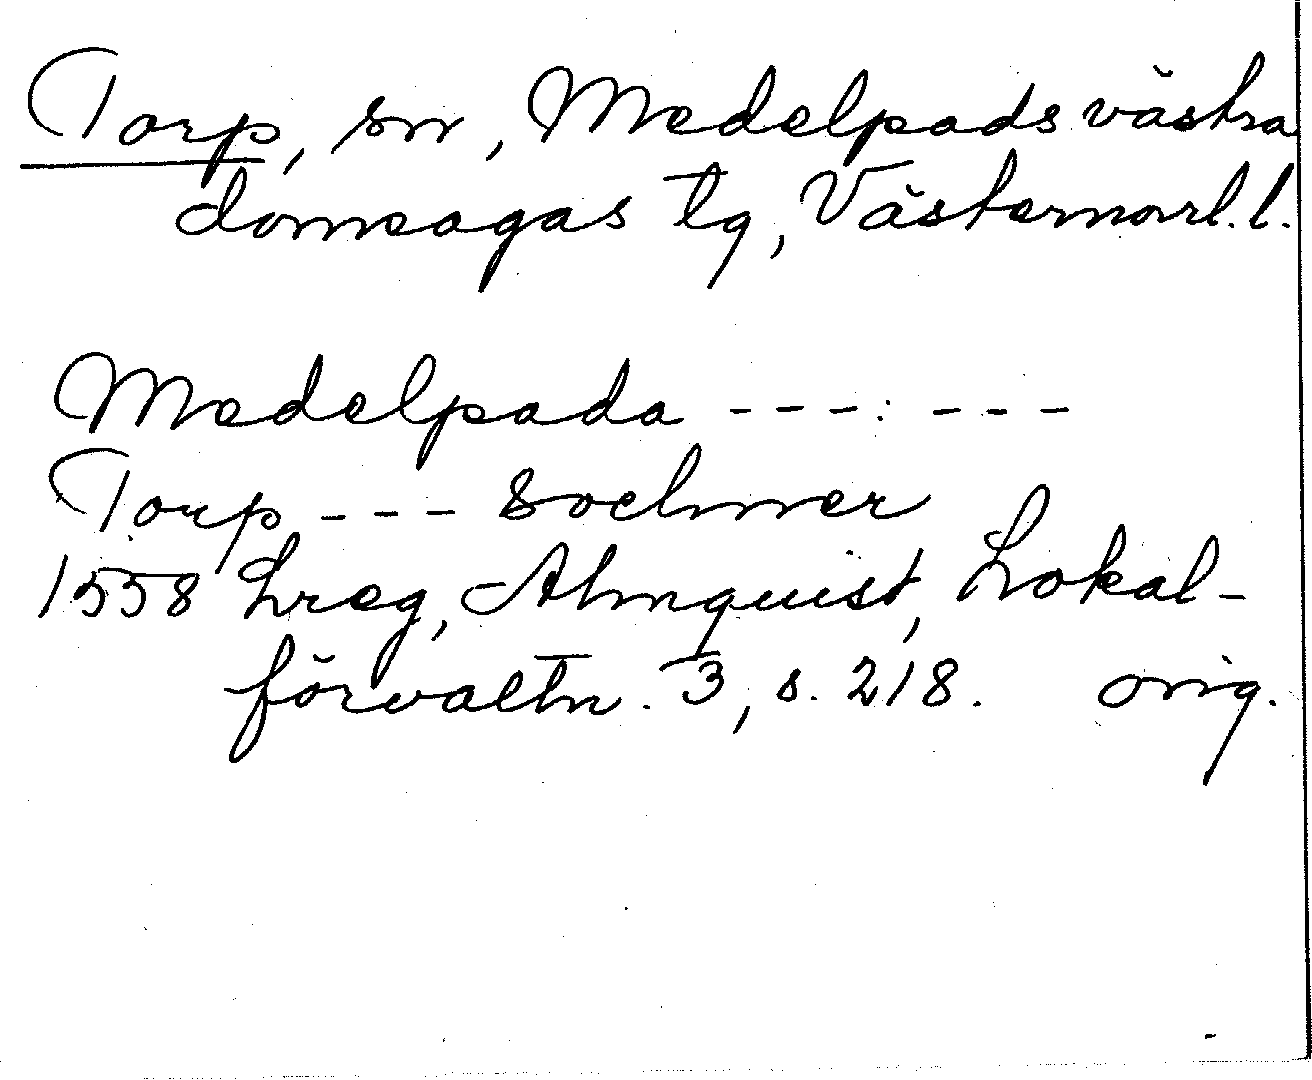 Torp, sn, Medelpads västra
domsagas tg, Västernorrl. l.
Medelpada - - - : - - -
Torp - - - sochner
1558 Lreg, Almquist, Lokal-
förvaltn. 3, s. 218. orig.